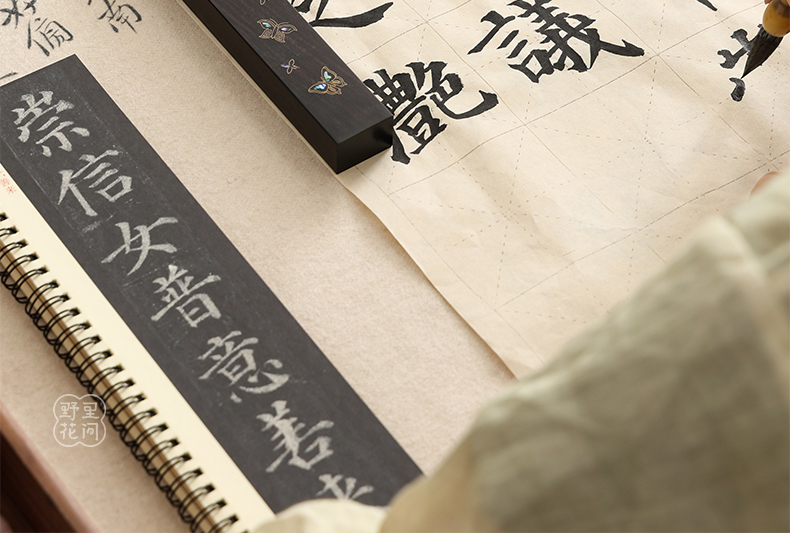 崇信女普意善
議
艷
野里
花间